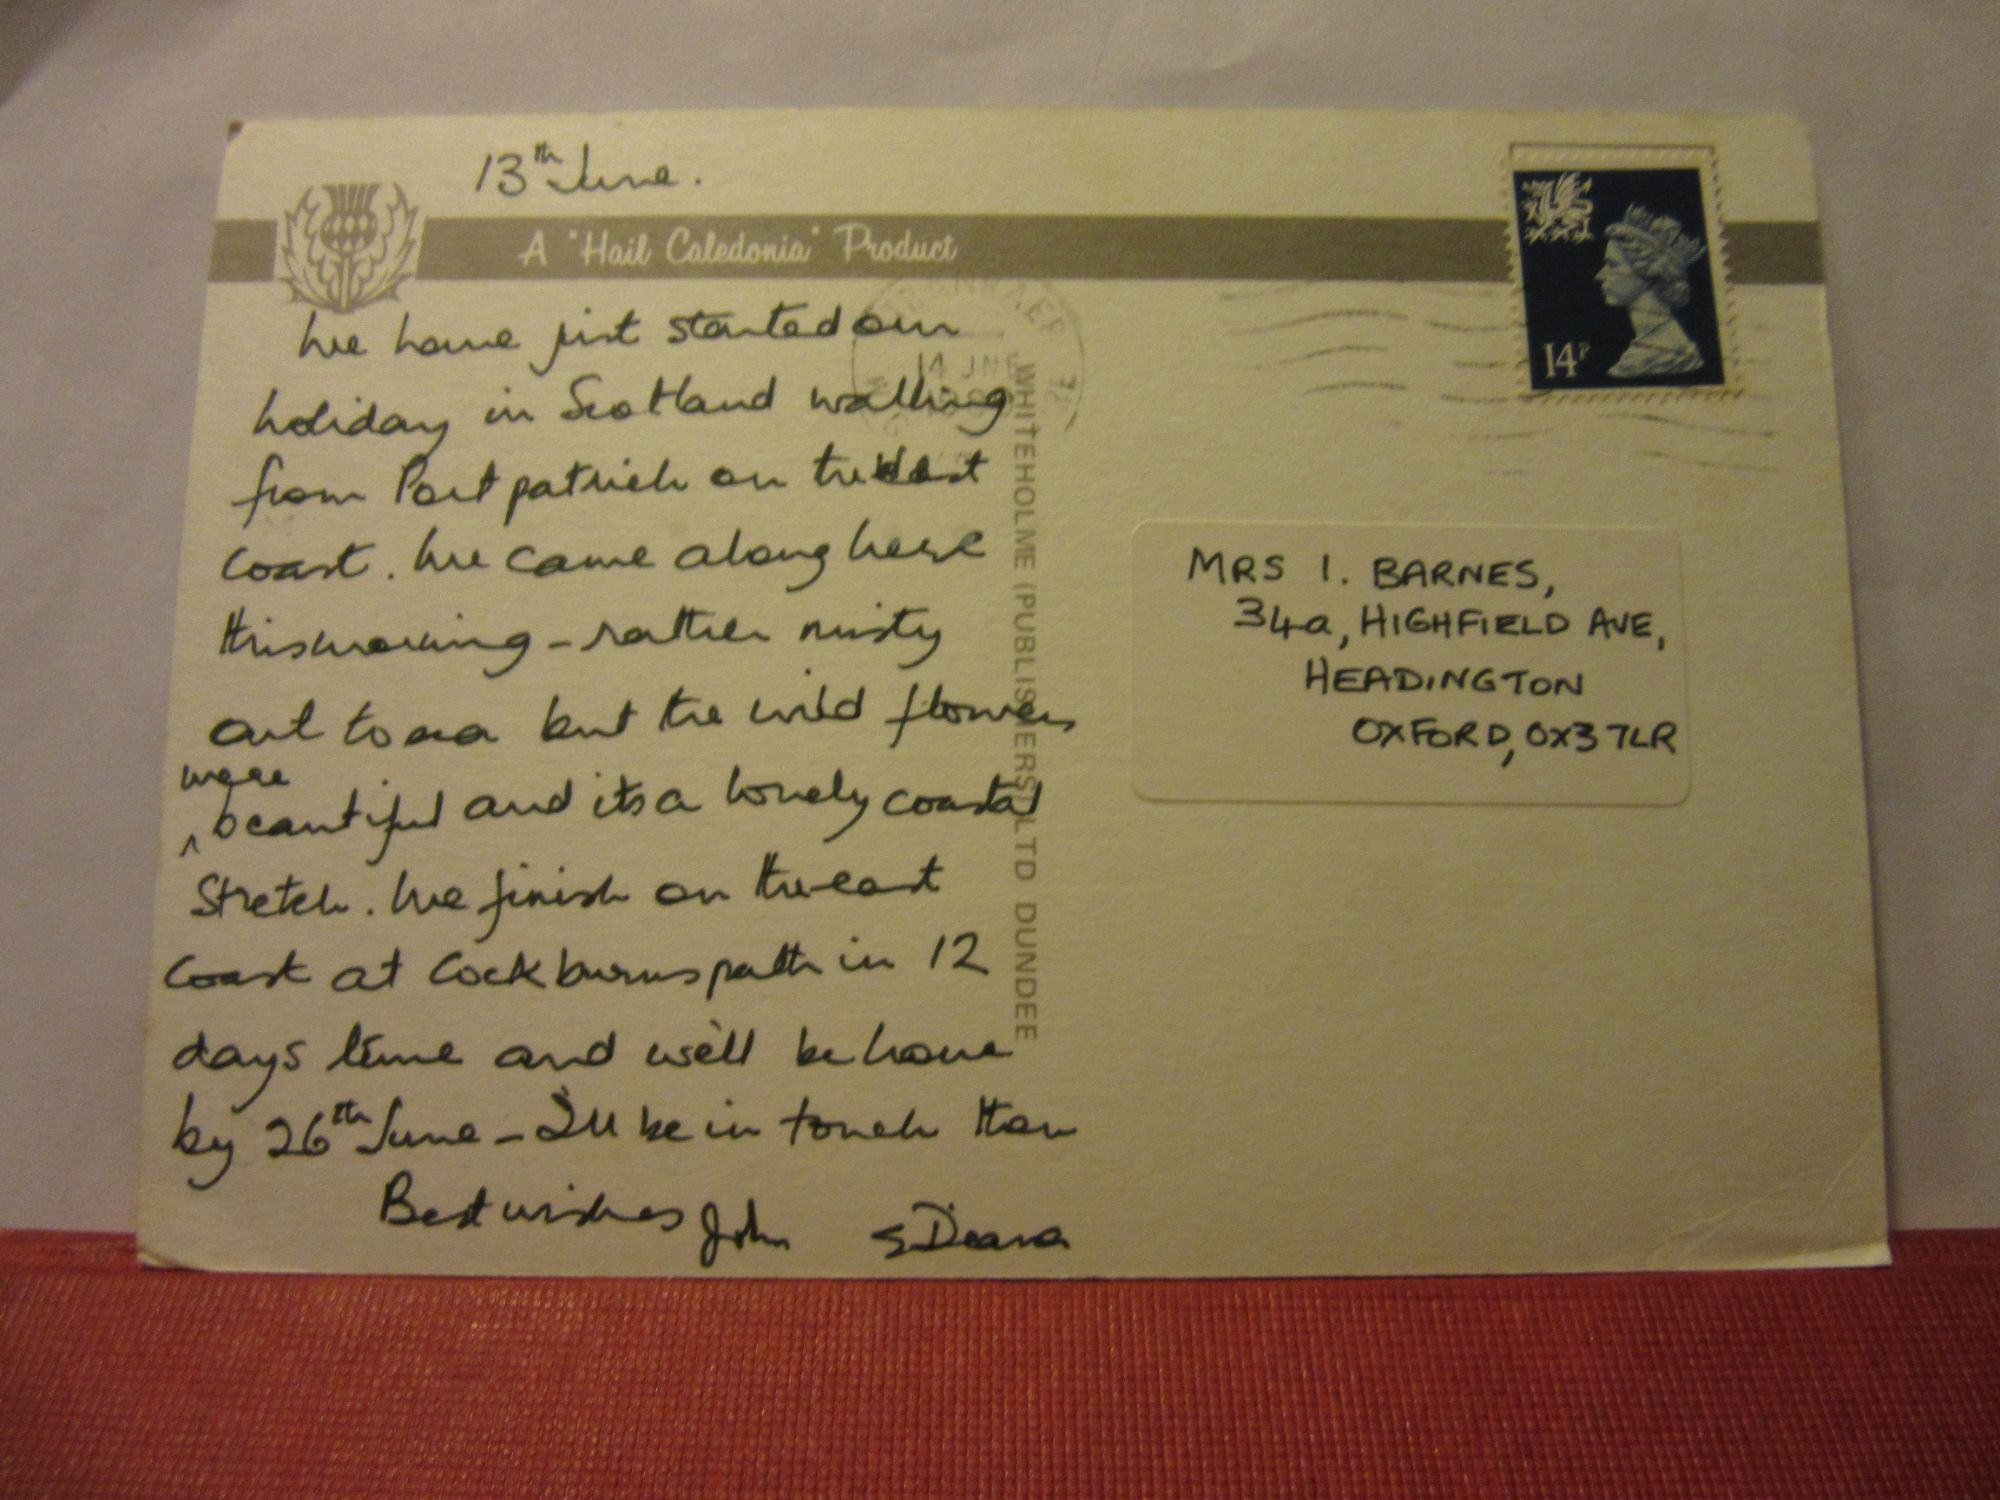 13th June.
A "Hail Caledonia" Product
We have just started our
holiday in Scotland walking
from Portpatrick on the West
Coast. We came along here
this morning - rather misty
out to sea but the wild flowers
were
^ beautiful and its a lonely coastal
Stretch. We finish on the east
Coast at Cockburnspath in 12
days time and we'll be home
by 26th June - I'll be in touch then
Best wishes John & Deana
WHITEHOLME (PUBLISHERS) LTD DUNDEE
STRANRAER
14 JNE
14P
MRS I. BARNES,
34a, HIGHFIELD AVE,
HEADINGTON
OXFORD, OX3 7LR